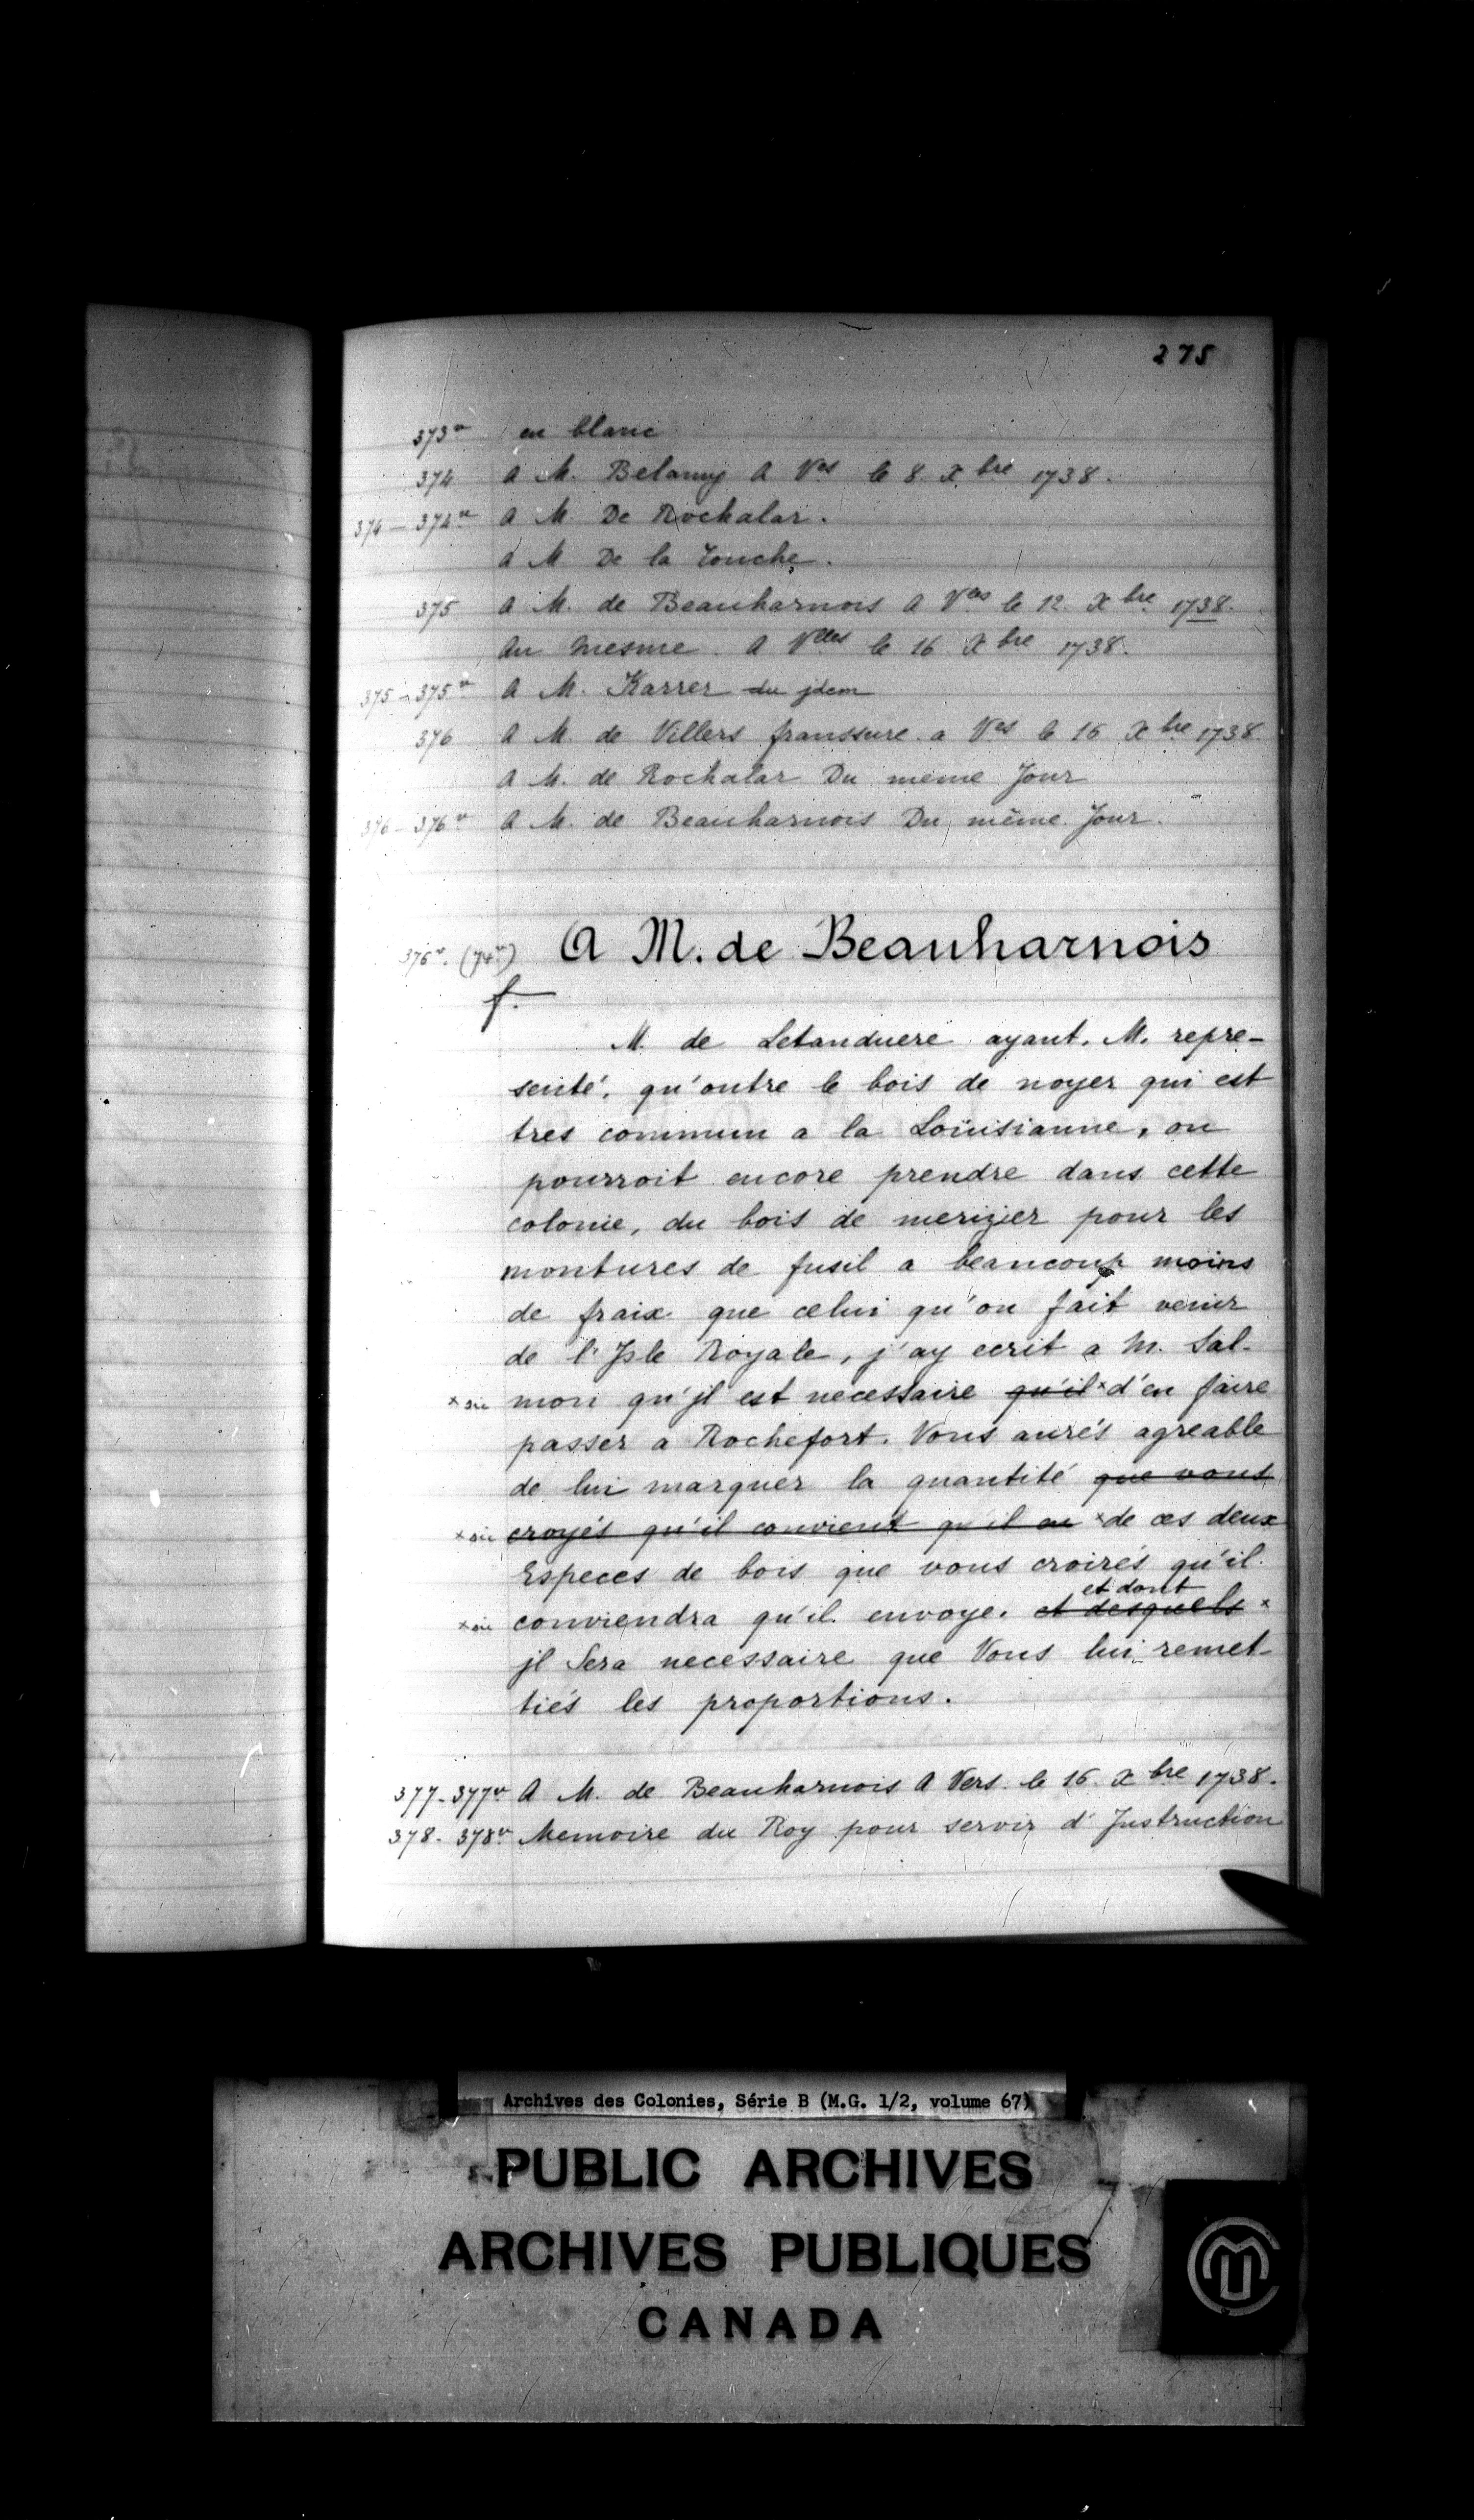 275
373v en blanc
374 A M. Belamy A Ves le 8 Xbre 1738.
374 - 374v A M. De Rochalar.
A M De la Touche.
375 A M. de Beauharnois A Vles le 12. Xbre 1738.
Au mesme. A Vlles le 16 Xbre 1738.
375 - 375v A M. Karrer du jdem
376 A M. de Villers franssure a Ves le 16 Xbre 1738
A M. de Rochalar Du meme Jour
376 - 376v A M. de Beauharnois Du même Jour.
376v. (74v) A M. de Beauharnois
f.
M. de Letanduere ayant. M. repre-
senté, qu'outre le bois de noyer qui est
tres commun a la Loüisianne, on
pourroit encore prendre dans cette
colonie, du bois de merizier pour les
montures de fusil a beaucoup moins
de fraix que celui qu'on fait venir
de l'Jsle Royale, j'ay ecrit a M. Sal-
x sic mon qu'jl est necessaire qu'il x d'en faire
passer a Rochefort. Vous aurés agreable
de lui marquer la quantité que vous
x sic croyés qu'il convient qu'il en x de ces deux
Especes de bois que vous croirés qu'il
et dont
x sic conviendra qu'il envoye. et desquels x
jl Sera necessaire que Vous lui remet-
tiés les proportions.
377 - 377v A M. de Beauharnois A Vers. le 16. Xbre 1738.
378 - 378v Memoire du Roy pour servir d'Jnstruction
Archives des Colonies, Série B (M.G. 1/2, volume 67)
PUBLIC ARCHIVES
ARCHIVES PUBLIQUES
CANADA